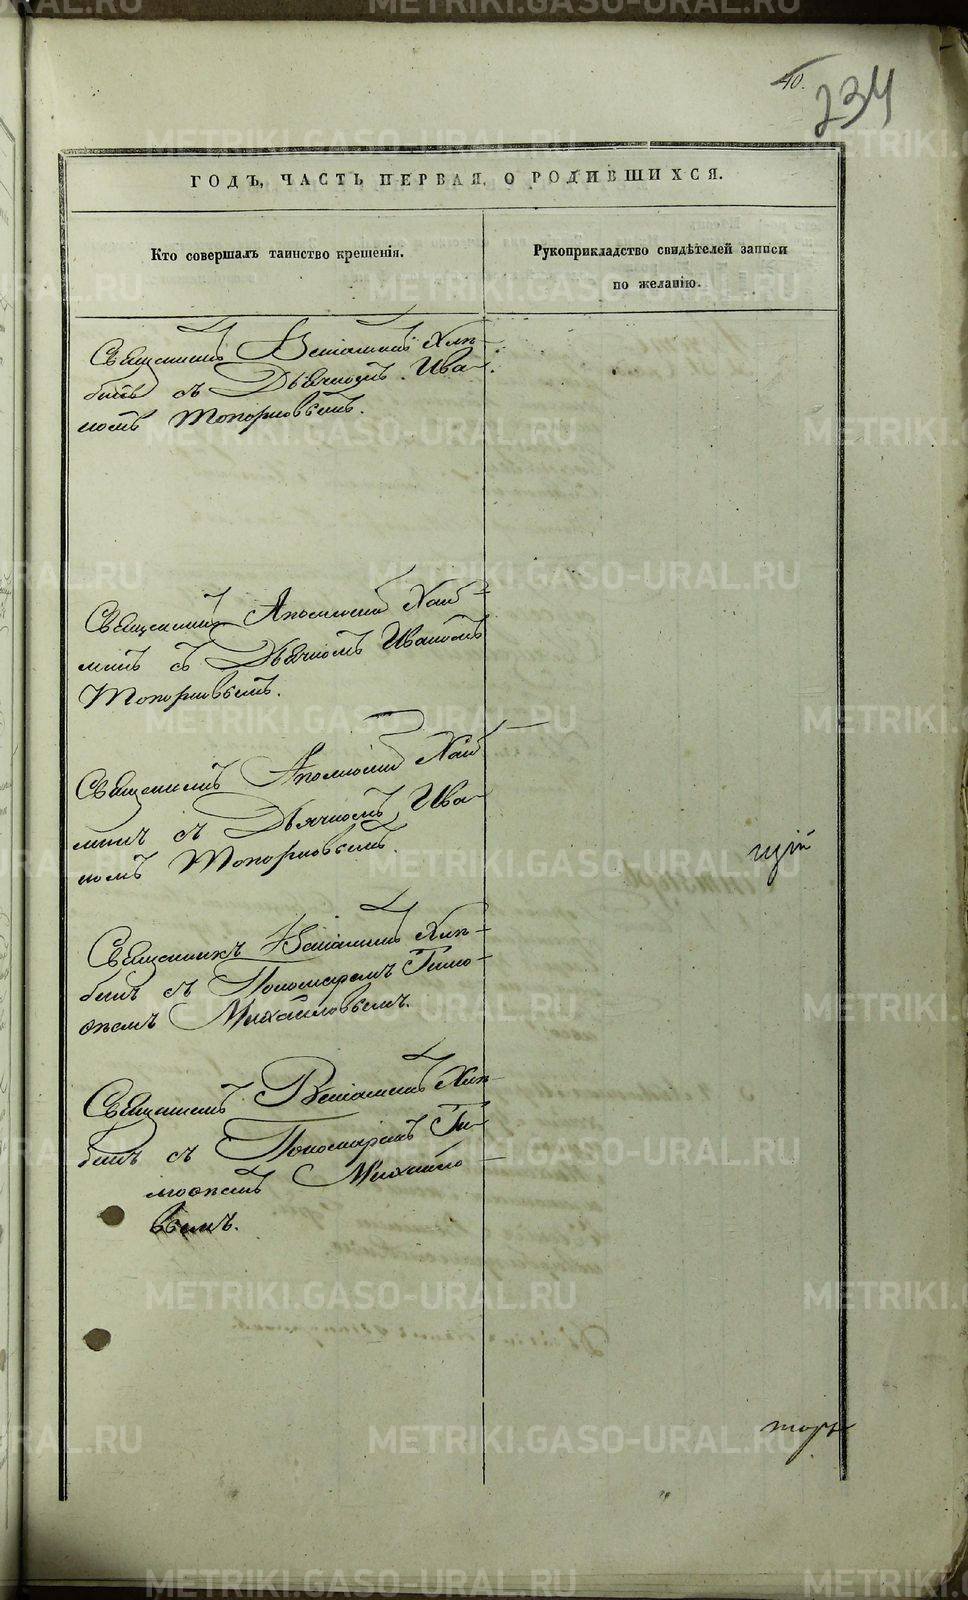 40.
234
ГОДЪ, ЧАСТЬ ПЕРВАЯ, О РОДИВШИХСЯ.
Кто совершалъ таинство крещенія.
Рукоприкладство свидѣтелей записи
по желанію.
Священникъ Веніаминъ Хлѣ-
бинъ съ Дьячкомъ Ива-
номъ Топорковымъ.
Священникъ Аполлоній Хлѣб-
нинъ съ Дьячкомъ Иваномъ
Топорковымъ.
Священникъ Аполлоній
съ Дьячкомъ Ива-
номъ Топорковымъ.
щій
Священникъ Веніаминъ Хлѣ-
бинъ съ Пономаремъ Тимо-
ѳеемъ Михайловымъ.
Священникъ Веніаминъ Хлѣ-
бинъ съ Пономаремъ Ти-
моѳеемъ Михайло-
вымъ.
METRIKI.GASO-URAL.RU